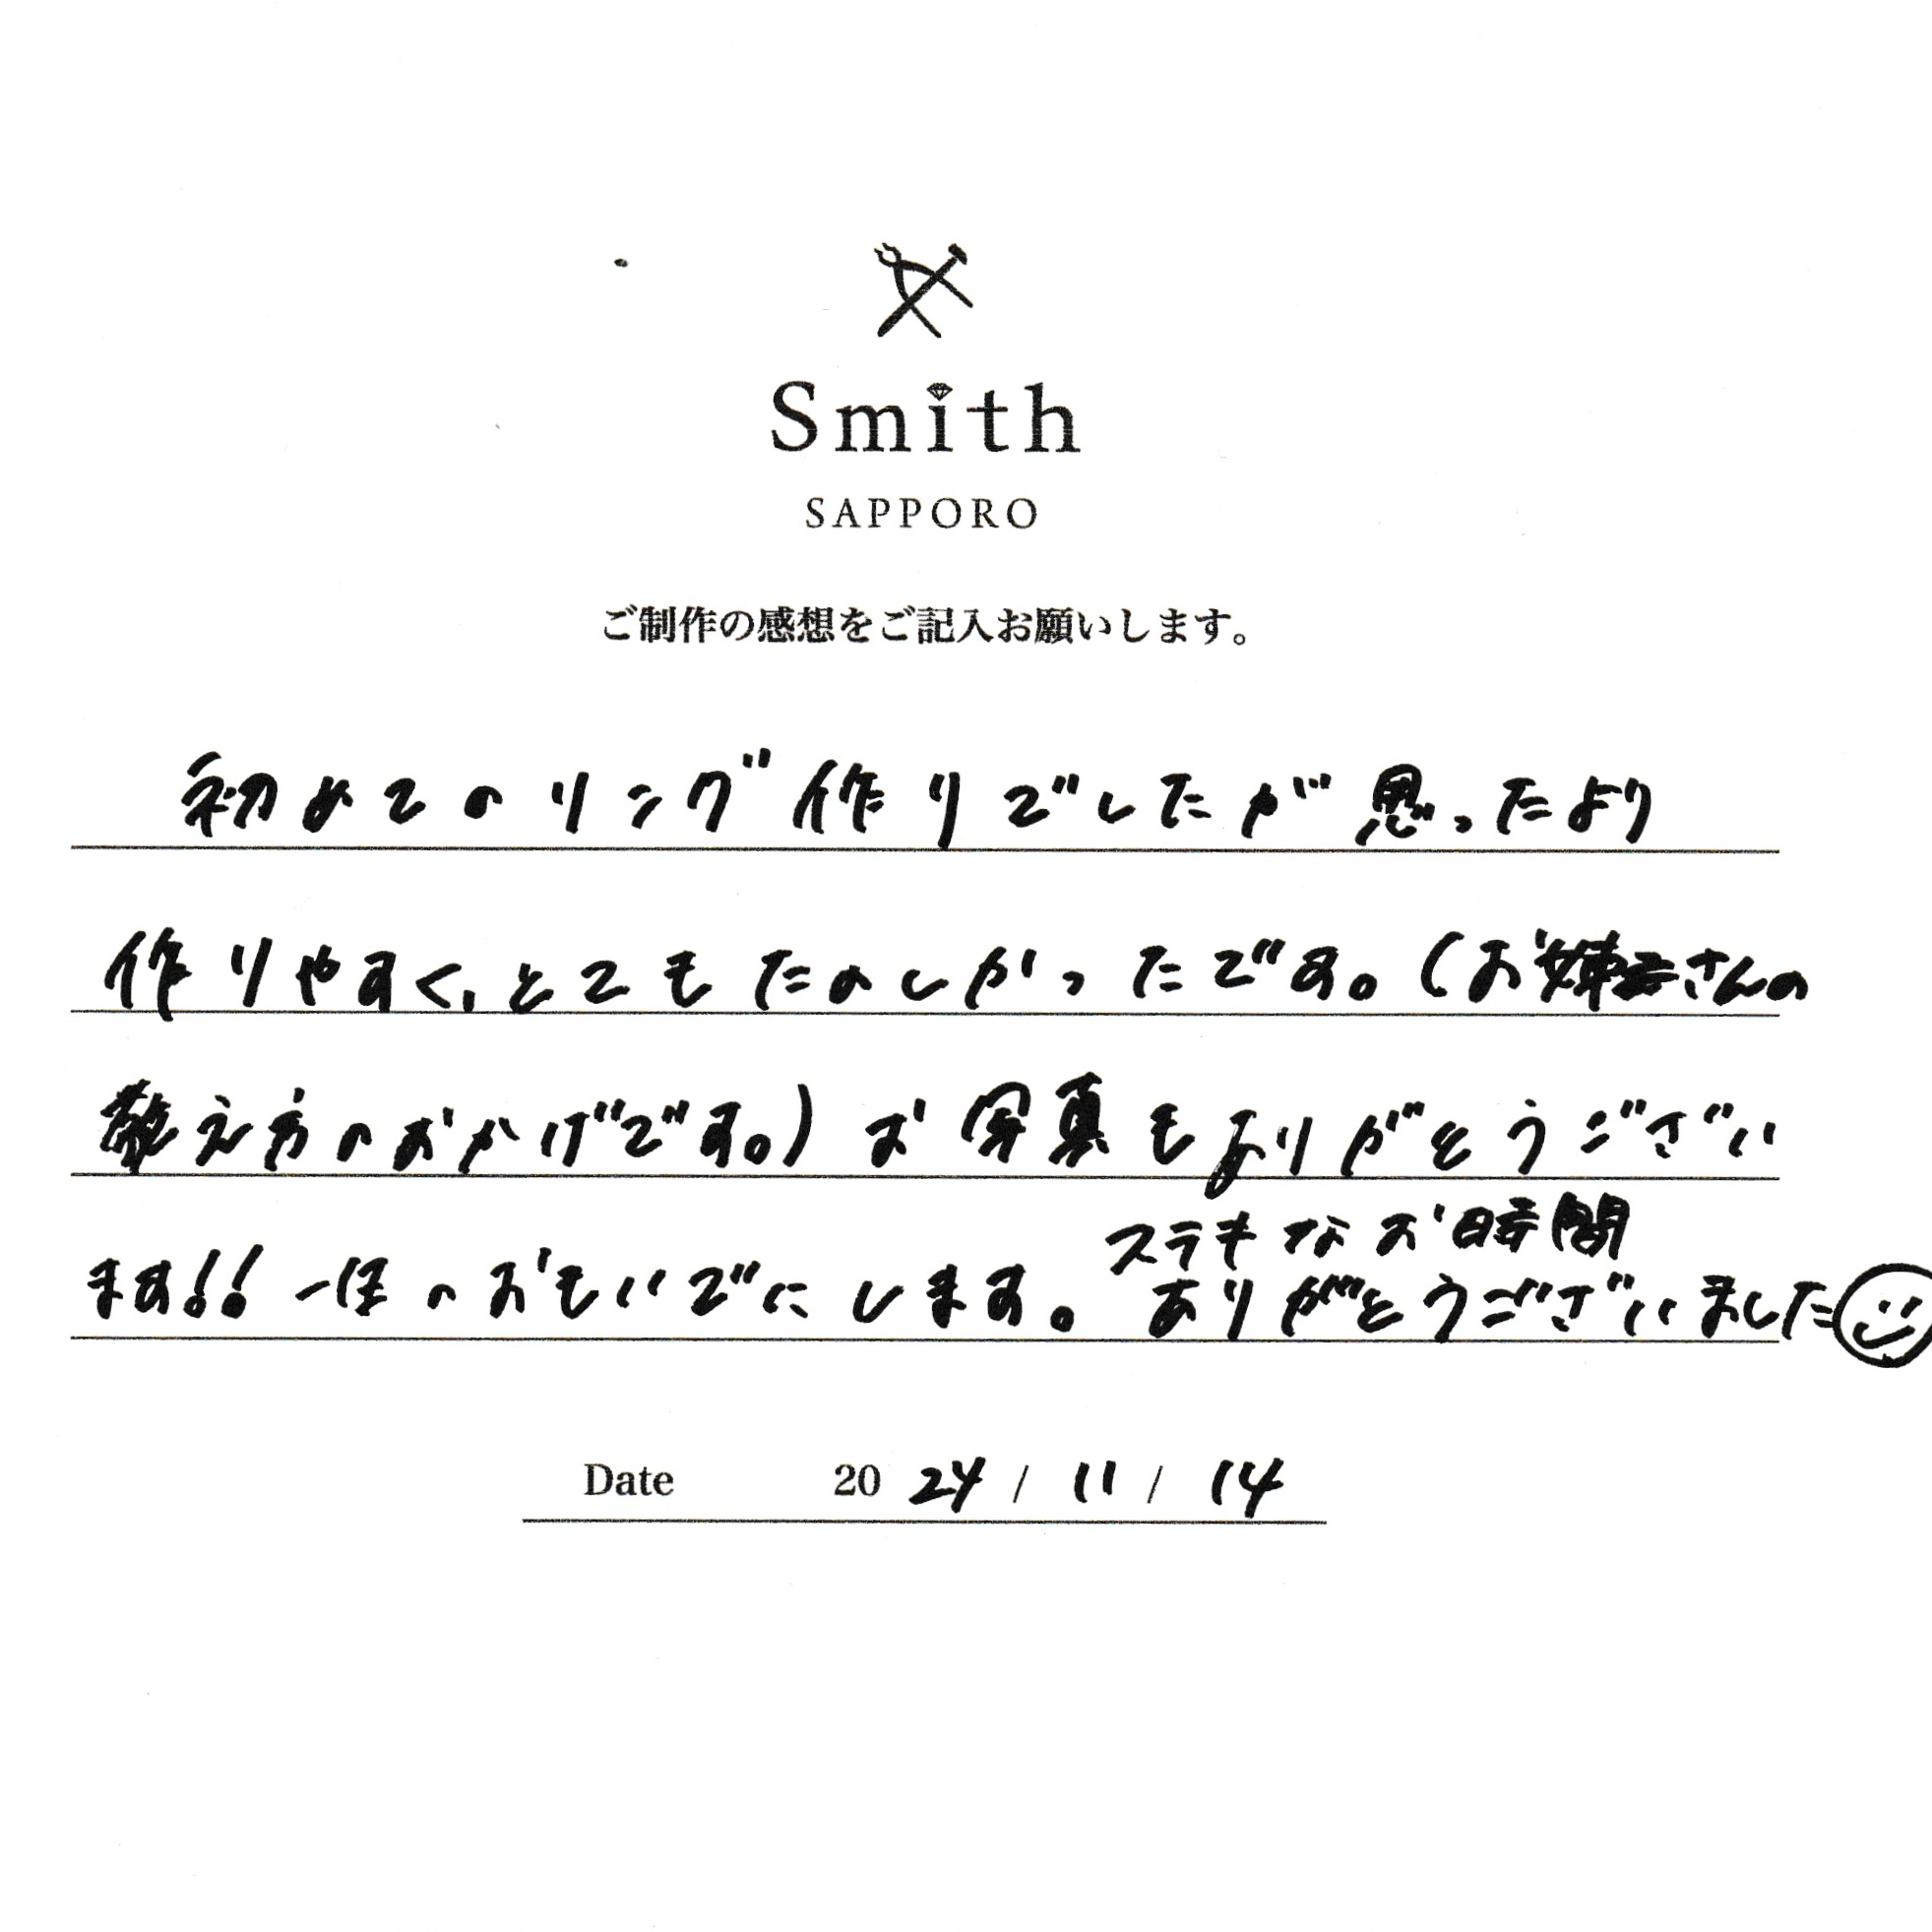 Smith
SAPPORO
ご制作の感想をご記入お願いします。
初めてのリング作りでしたが思ったより
作りやすく、とてもたのしかったです。(お姉さんの
教え方のおかげです。)お写真もありがとうござい
ます!!一生のおもいでにします。ステキなお時間
ありがとうございました
Date 2024/11/14